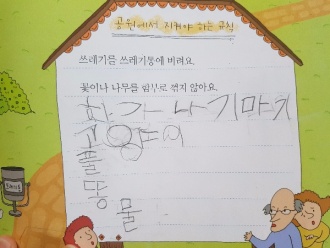 공원에서 지켜야 하는 규칙
쓰레기를 쓰레기통에 버려요.
꽃이나 나무를 함부로 꺾지 않아요.
차 가 나 기 마 지
고양이
풀
똥
물